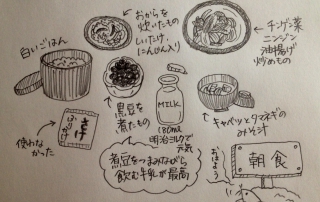 おからを
炊いたもの
しいたけ、
にんじん入り
チンゲン菜
ニンジン
油揚げ
炒めもの
白いごはん
黒豆を
煮たもの
MILK
180mL
明治ミルクで
元気
キャベツとタマネギの
みそ汁
使わな
かった
さけ
ふりかけ
煮豆をつまみながら
飲む牛乳が最高
おはよう
朝食